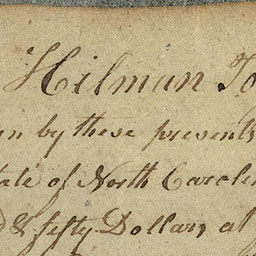 Hilman To
en by these presents
tate of North Carolin
d & fifty Dollars, at